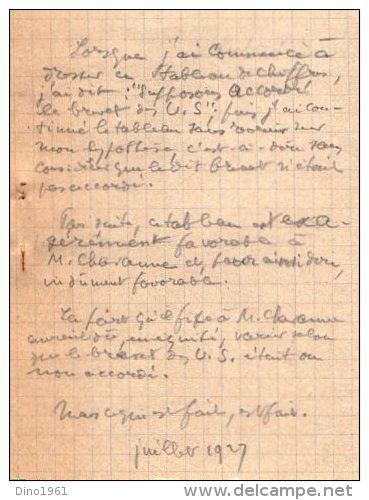 Lorsque j'ai commencé à
dresser ce tableau de chiffres,
j'ai dit : "Supposons accordé
le brevet des U.S"; puis j'ai con-
tinué le tableau sans revenir sur
mon hypothèse c'est-à-dire sans
considérer que ledit brevet n'était
pas accordé.
Par suite, ce tableau est exa-
gérément favorable à
M. Chavanne et, pour ainsi dire,
indûment favorable.
La part qu'il fixe à M. Chavanne
aurait dû, en équité, varier selon
que le brevet des U.S. était ou
non accordé.
Mais ce qui est fait, est fait.
juillet 1927
Dino1961
www.delcampe.net